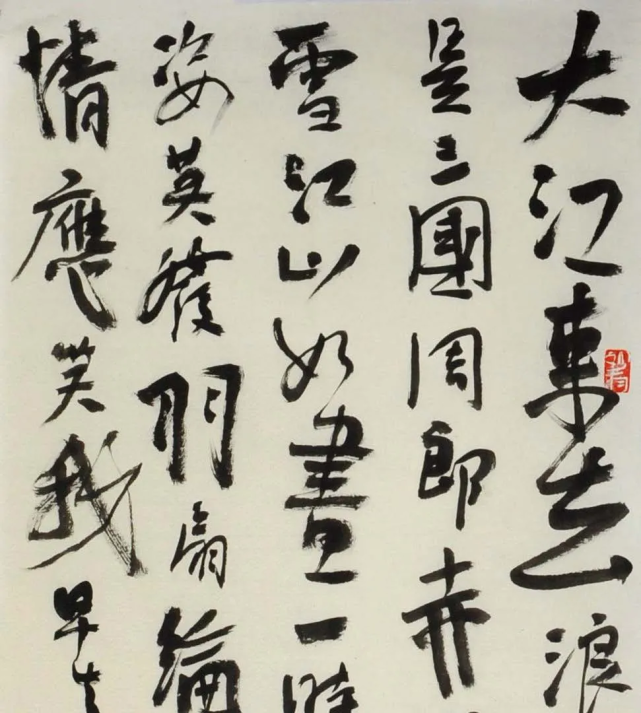 大江東去浪
是三國周郎赤
雪江山如畫一時
姿英發羽扇綸
情應笑我早生